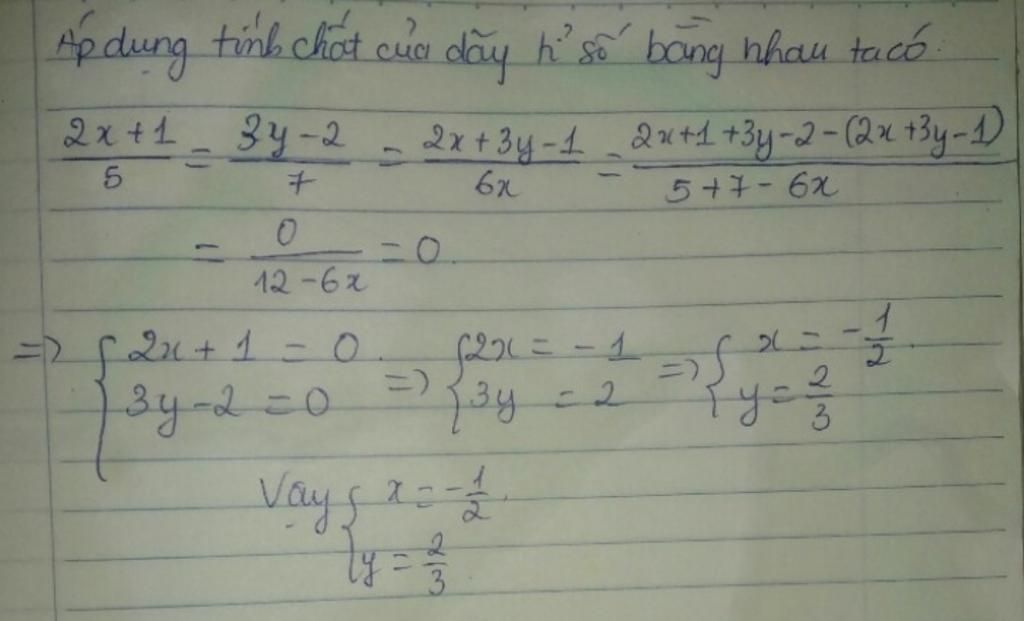 Áp dụng tính chất của dãy tỉ số bằng nhau ta có
(2x + 1)/5 = (3y - 2)/7 = (2x + 3y - 1)/6x = (2x + 1 + 3y - 2 - (2x + 3y - 1))/(5 + 7 - 6x)
= 0/(12 - 6x) = 0.
=> { 2x + 1 = 0. 3y - 2 = 0 => { 2x = -1 3y = 2 => { x = -1/2. y = 2/3
Vậy { x = -1/2. y = 2/3